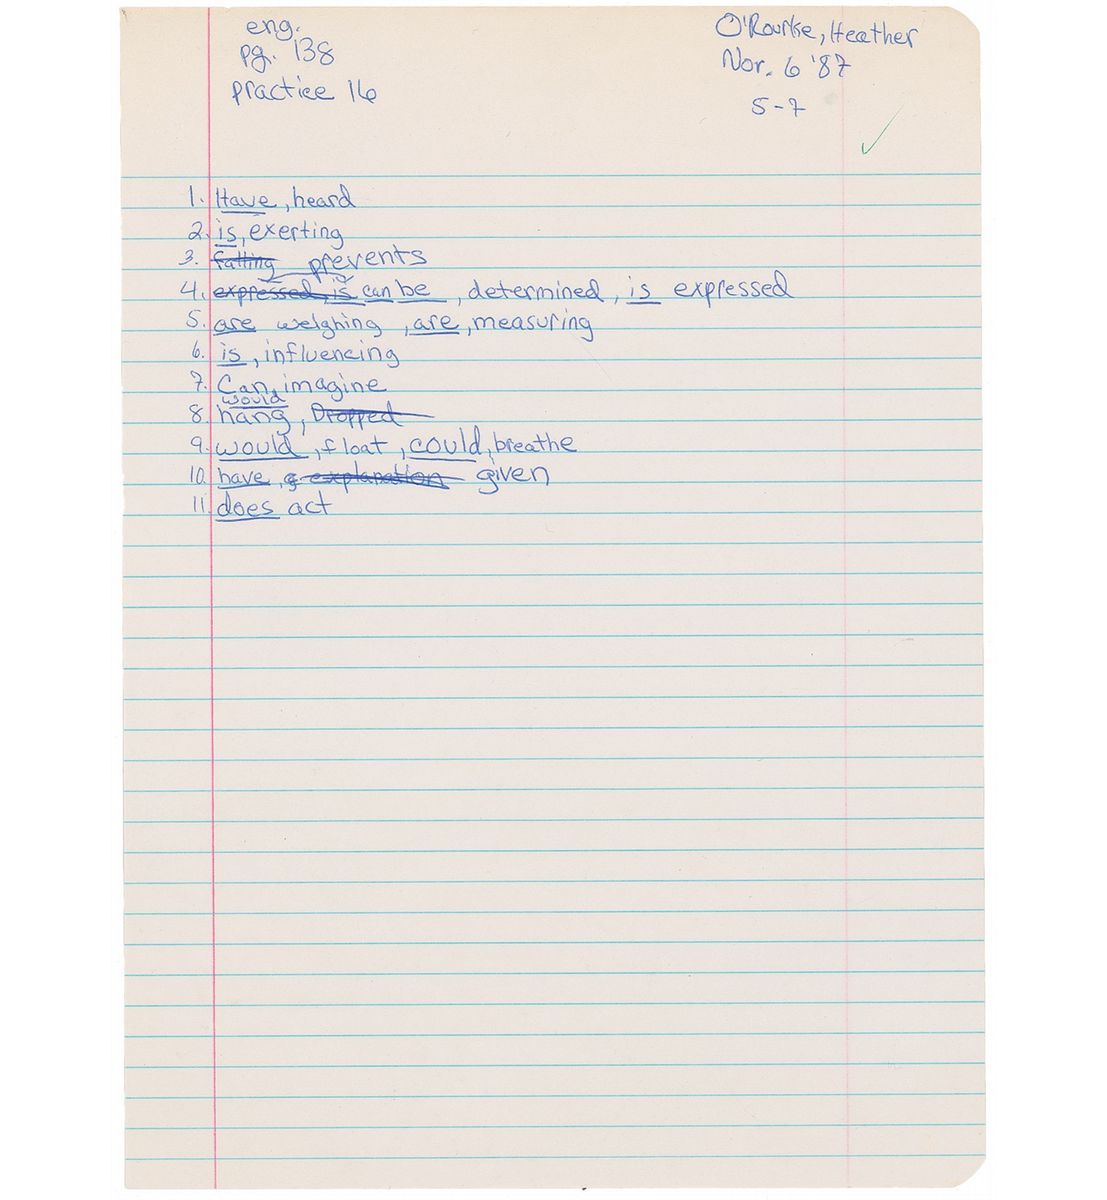 eng.
pg. 138
practice 16
O'Rourke, Heather
Nov. 6 '87
5-7
1. Have, heard
2. is, exerting
3. falling prevents
4. expressed, is is can be, determined, is expressed
5. are weighing, are, measuring
6. is, influencing
7. Can, imagine
would
8. hang, Dropped
9. would, float, could, breathe
10. have, g explanation given
11. does act